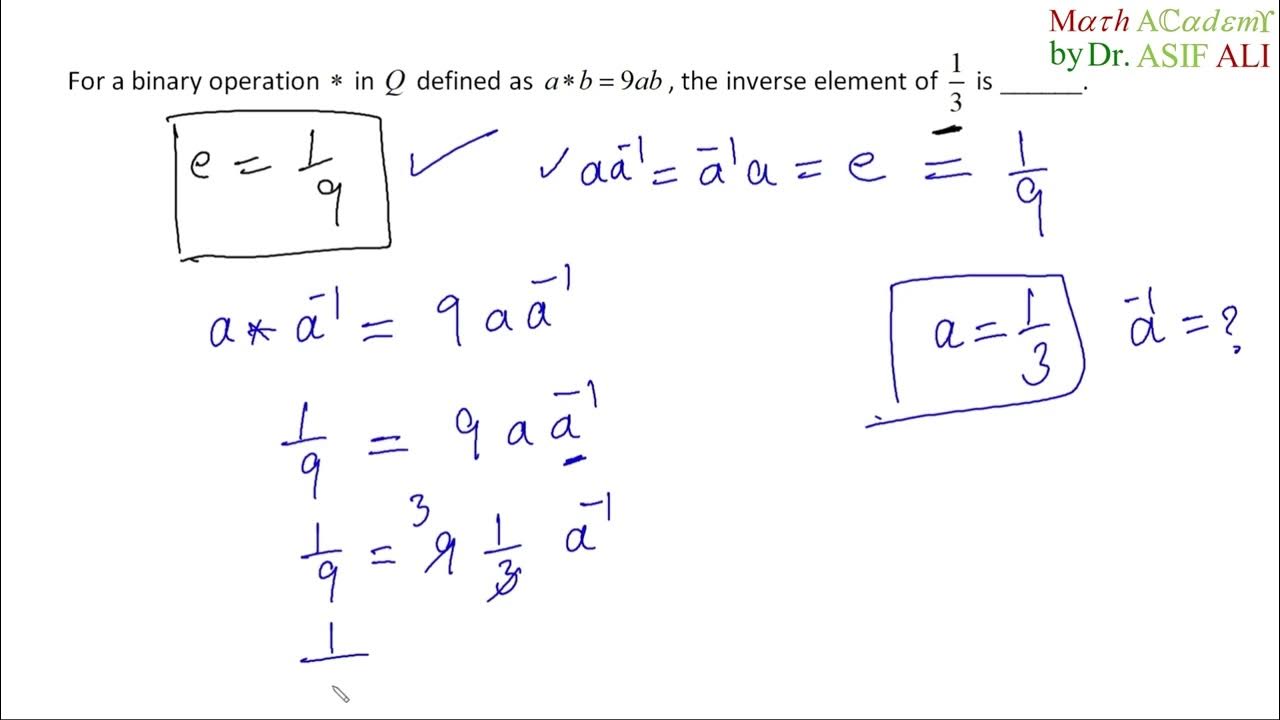 Mαth ACαdεmϒ
by Dr. ASIF ALI
For a binary operation * in Q defined as a*b = 9ab, the inverse element of 1/3 is ______.
e = 1/9 ✓
✓ a a⁻¹ = a⁻¹ a = e = 1/9
a * a⁻¹ = 9 a a⁻¹
a = 1/3 a⁻¹ = ?
1/9 = 9 a a⁻¹
1/9 = 3 9 1/3 a⁻¹
1